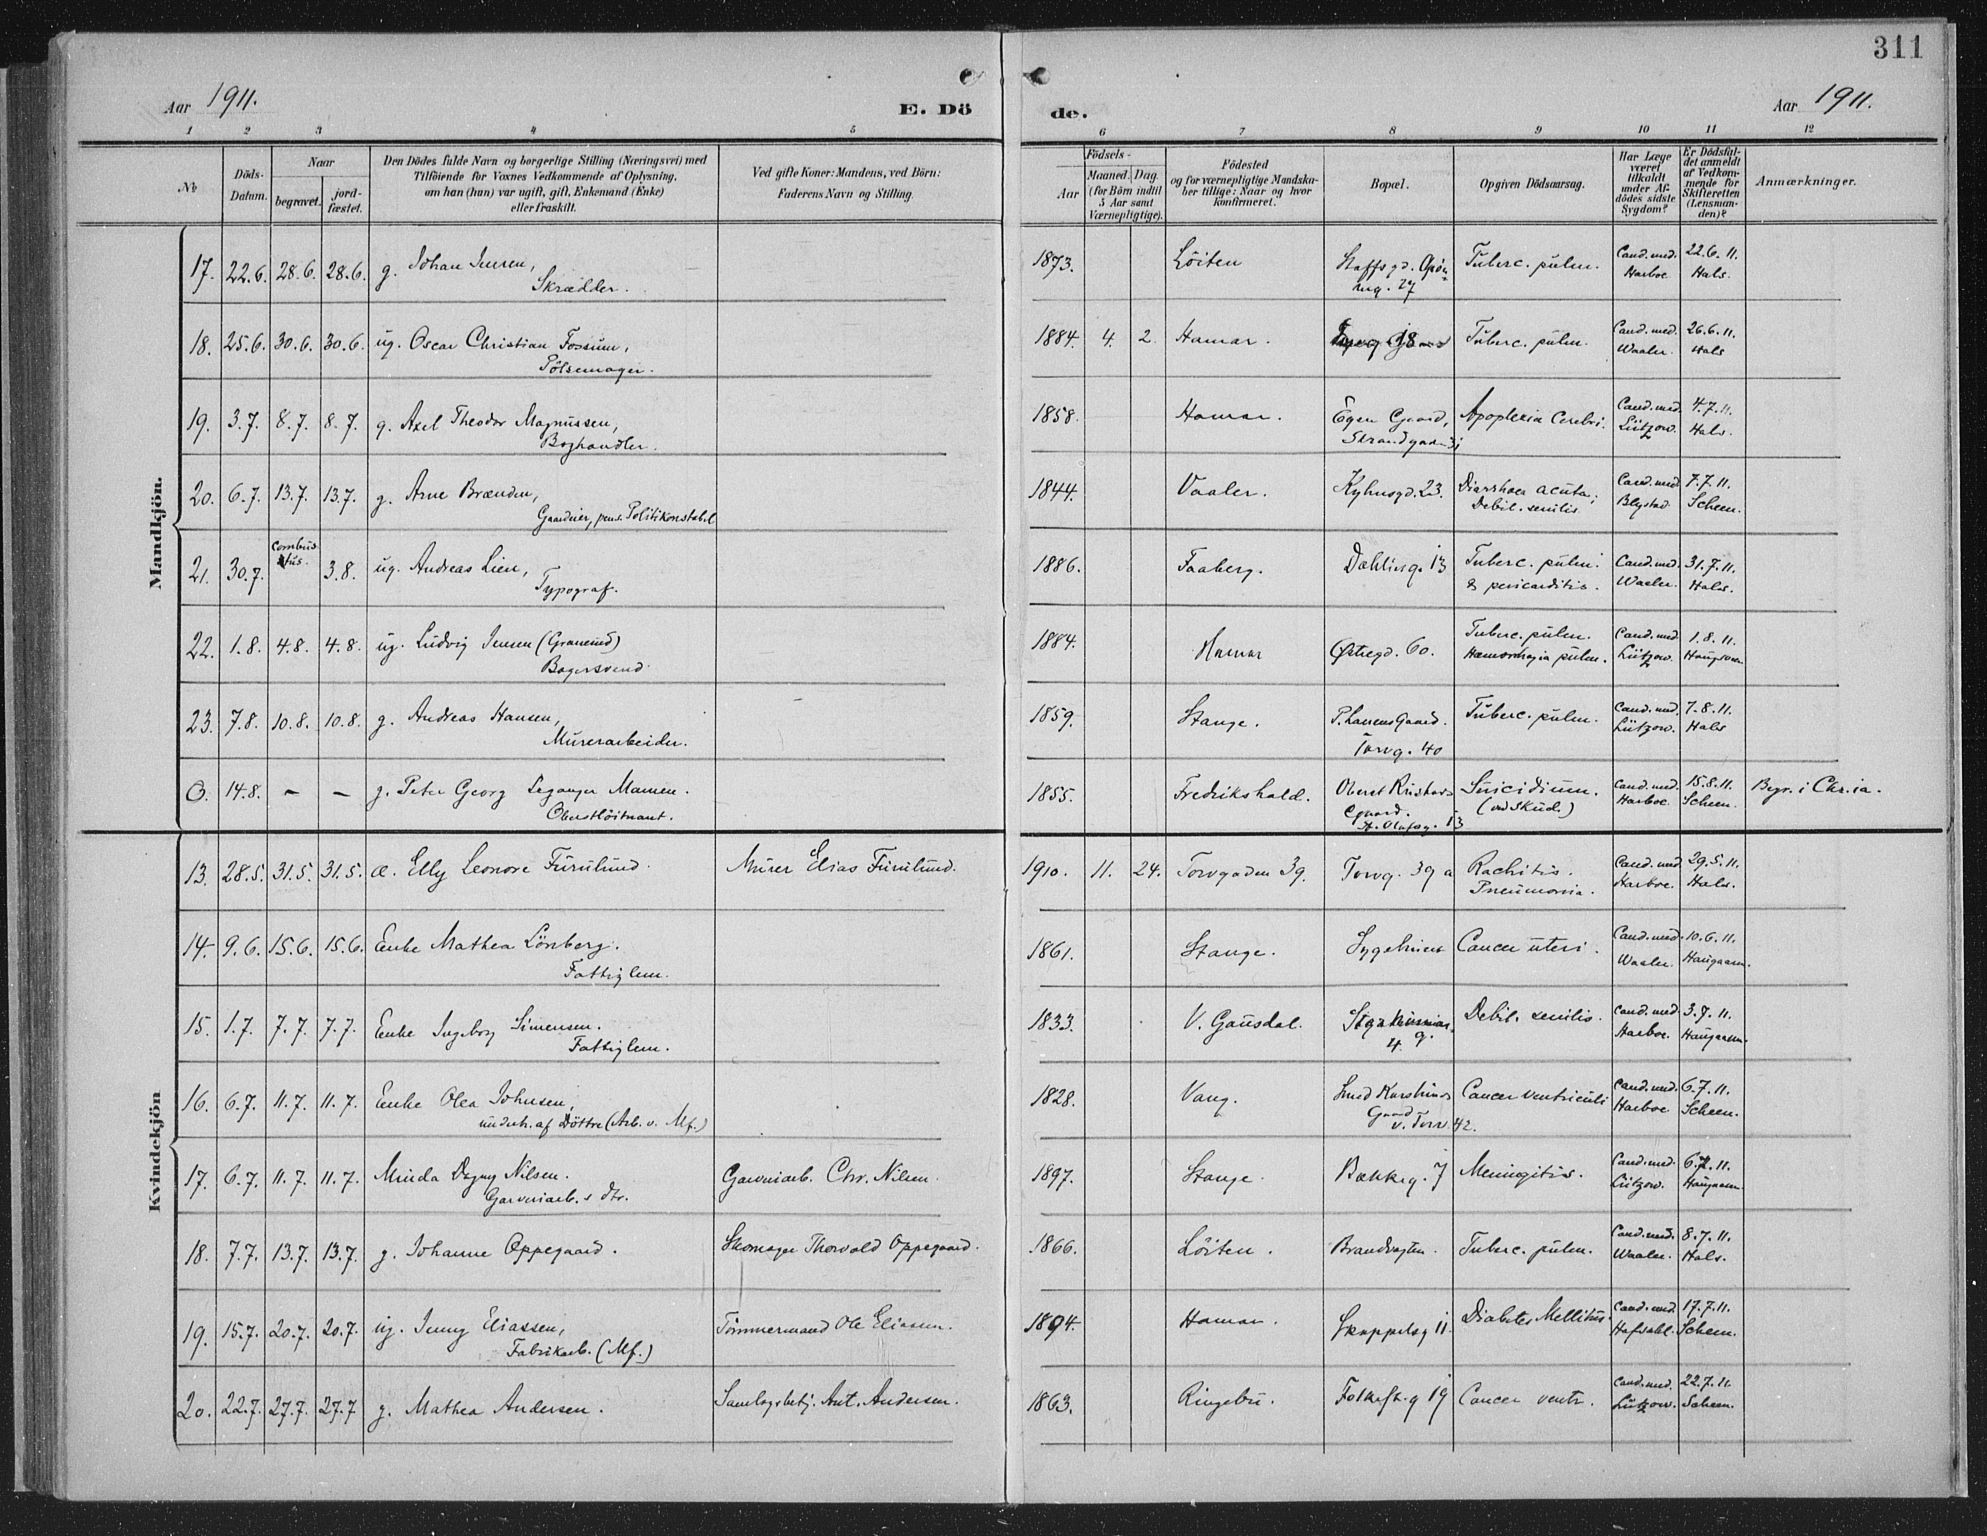 311
Aar 1911.
E. Döde.
Aar 1911.
1 2 3 4 5 6 7 8 9 10 11 12
No
Döds-Datum.
Naar
begravet.
jord-fæstet.
Den Dödes fulde Navn og borgerlige Stilling (Næringsvei) med
Tilföiende for Voxnes Vedkommende af Oplysning,
om han (hun) var ugift, gift, Enkemand (Enke)
eller fraskilt.
Ved gifte Koner: Mandens, ved Börn:
Faderens Navn og Stilling.
Födsels-
Aar
Maaned. Dag.
(for Börn indtil
5 Aar samt
Værnepligtige).
Födested
og for værnepligtige Mandska-
ber tillige: Naar og hvor
konfirmeret.
Bopæl.
Opgiven Dödsaarsag.
Har Læge
været
tilkaldt
under Af-
dödes sidste
Sygdom?
Er Dödsfal-
det anmeldt
af Vedkom-
mende for
Skifteretten
(Lensman-
den)?
Anmærkninger.
Mandkjön.
17. 22.6. 28.6. 28.6. g. Johan Jensen, 1873. Löiten Tuberc. pulm. Cand. med. 22.6.11.
Skrædder. 27 Harboe Hals.
18. 25.6. 30.6. 30.6. ug. Oscar Christian Fossum, 1884. 4. 2. Hamar. Tuberc. pulm. Cand. med. 26.6.11.
Pölsemager. Waaler. Hals
19. 3.7. 8.7. 8.7. g. Axel Theodor Magnussen, 1858. Hamar. Egen Gaard, Apoplexia Cerebri. Cand. med. 4.7.11.
Boghandler. Lützow. Hals.
20. 6.7. 13.7. 13.7. g. Arne Brænden, 1844. Vaaler. Kyhnsgd. 23. Diarrhoea acuta; Cand. med. 7.7.11.
Gaardeier, pens. Politikonstabel Debil. senilis Blystad Scheen.
21. 30.7. Combus
tus. 3.8. ug. Andreas Lien, 1886. Faaberg. Dahlinsg. 13 Tuberc. pulm. Cand. med. 31.7.11.
Typograf. & pericarditis. Waaler. Hals.
22. 1.8. 4.8. 4.8. ug. Ludvig Jensen (Granerud) 1884. Hamar Østregd. 60. Tuberc. pulm. Cand. med. 1.8.11.
Bagersvend Hæmorrhagia pulm. Lützow.
23. 7.8. 10.8. 10.8. g. Andreas Hansen, 1859. Stange. P. Larsens Gaard. Tuberc. pulm. Cand. med. 7.8.11.
Murerarbeider. Torvg. 40 Lützow. Hals
O. 14.8. – – g. Peter Georg Leganger Mamen. 1855. Fredrikshald. Suicidium. Cand. med. 15.8.11. Begr. i Chr.ia.
Oberstlöitnant. St. Olafsg. 13 (ved Skud.) Harboe. Scheen.
Kvindekjön
13. 28.5. 31.5. 31.5. æ. Elly Leonore Furulund. Murer Elias Furulund. 1910. 11. 24. Torvgaden 39. Torvg. 39 a Rachitis. Cand. med. 29.5.11.
Pneumonia. Harboe. Hals.
14. 9.6. 15.6. 15.6. Enke Mathea Lönberg. 1861. Stange. Sygehuset Cancer uteri. Cand. med. 10.6.11.
Fattiglem. Waaler. Haugaasen.
15. 1.7. 7.7. 7.7. Enke Ingeborg Simensen. 1833. V. Gausdal. Debil. senilis. Cand. med. 3.7.11.
Fattiglem. 4. Harboe. Haugaasen.
16. 6.7. 11.7. 11.7. Enke Olea Johnsen, 1828. Vang. Cancer ventriculi Cand. med. 6.7.11.
underh. af Döttre (Arb. v. Mf.) Gaard v. Torv. 42. Harboe Scheen.
17. 6.7. 11.7. 11.7. Minda Dagny Nilsen. Garveriarb. Chr. Nilsen. 1897. Stange. Bækkeg. 7 Meningitis. Cand. med. 6.7.11.
Garveriarb.s dtr. Lützow. Haugaasen.
18. 7.7. 13.7. 13.7. g. Johanne Oppegaard. Skomager Thorvald Oppegaard. 1866. Löiten. Brandvagten. Tuberc. pulm. Cand. med. 8.7.11.
Waaler. Hals.
19. 15.7. 20.7. 20.7. ug. Jenny Eliassen, Tömmermand Ole Eliassen. 1894. Hamar. Skappelsg 11. Diabetes Mellitus Cand. med. 17.7.11.
Fabrikarb. (Mf.) Hofsahl. Scheen.
20. 22.7. 27.7. 27.7 g. Mathea Andersen. Samlagsbetj. Ant. Andersen. 1863. Ringebu. Folkestg 19 Cancer ventr. Cand. med. 22.7.11.
Lützow. Scheen.